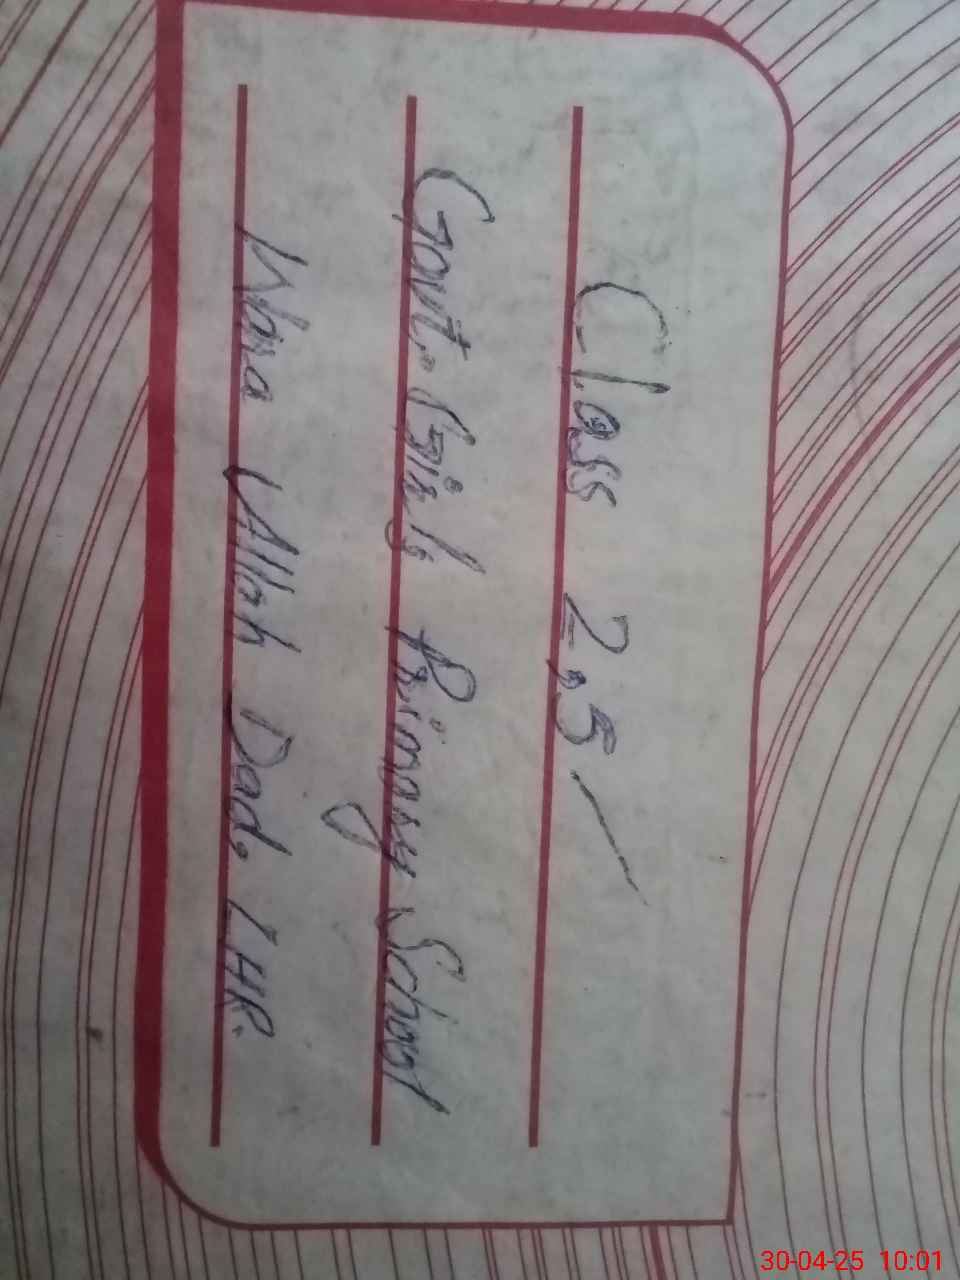 Class 2,5
Govt. Girls Primary School
Wara Allah Dad, LHR.
30-04-25 10:01